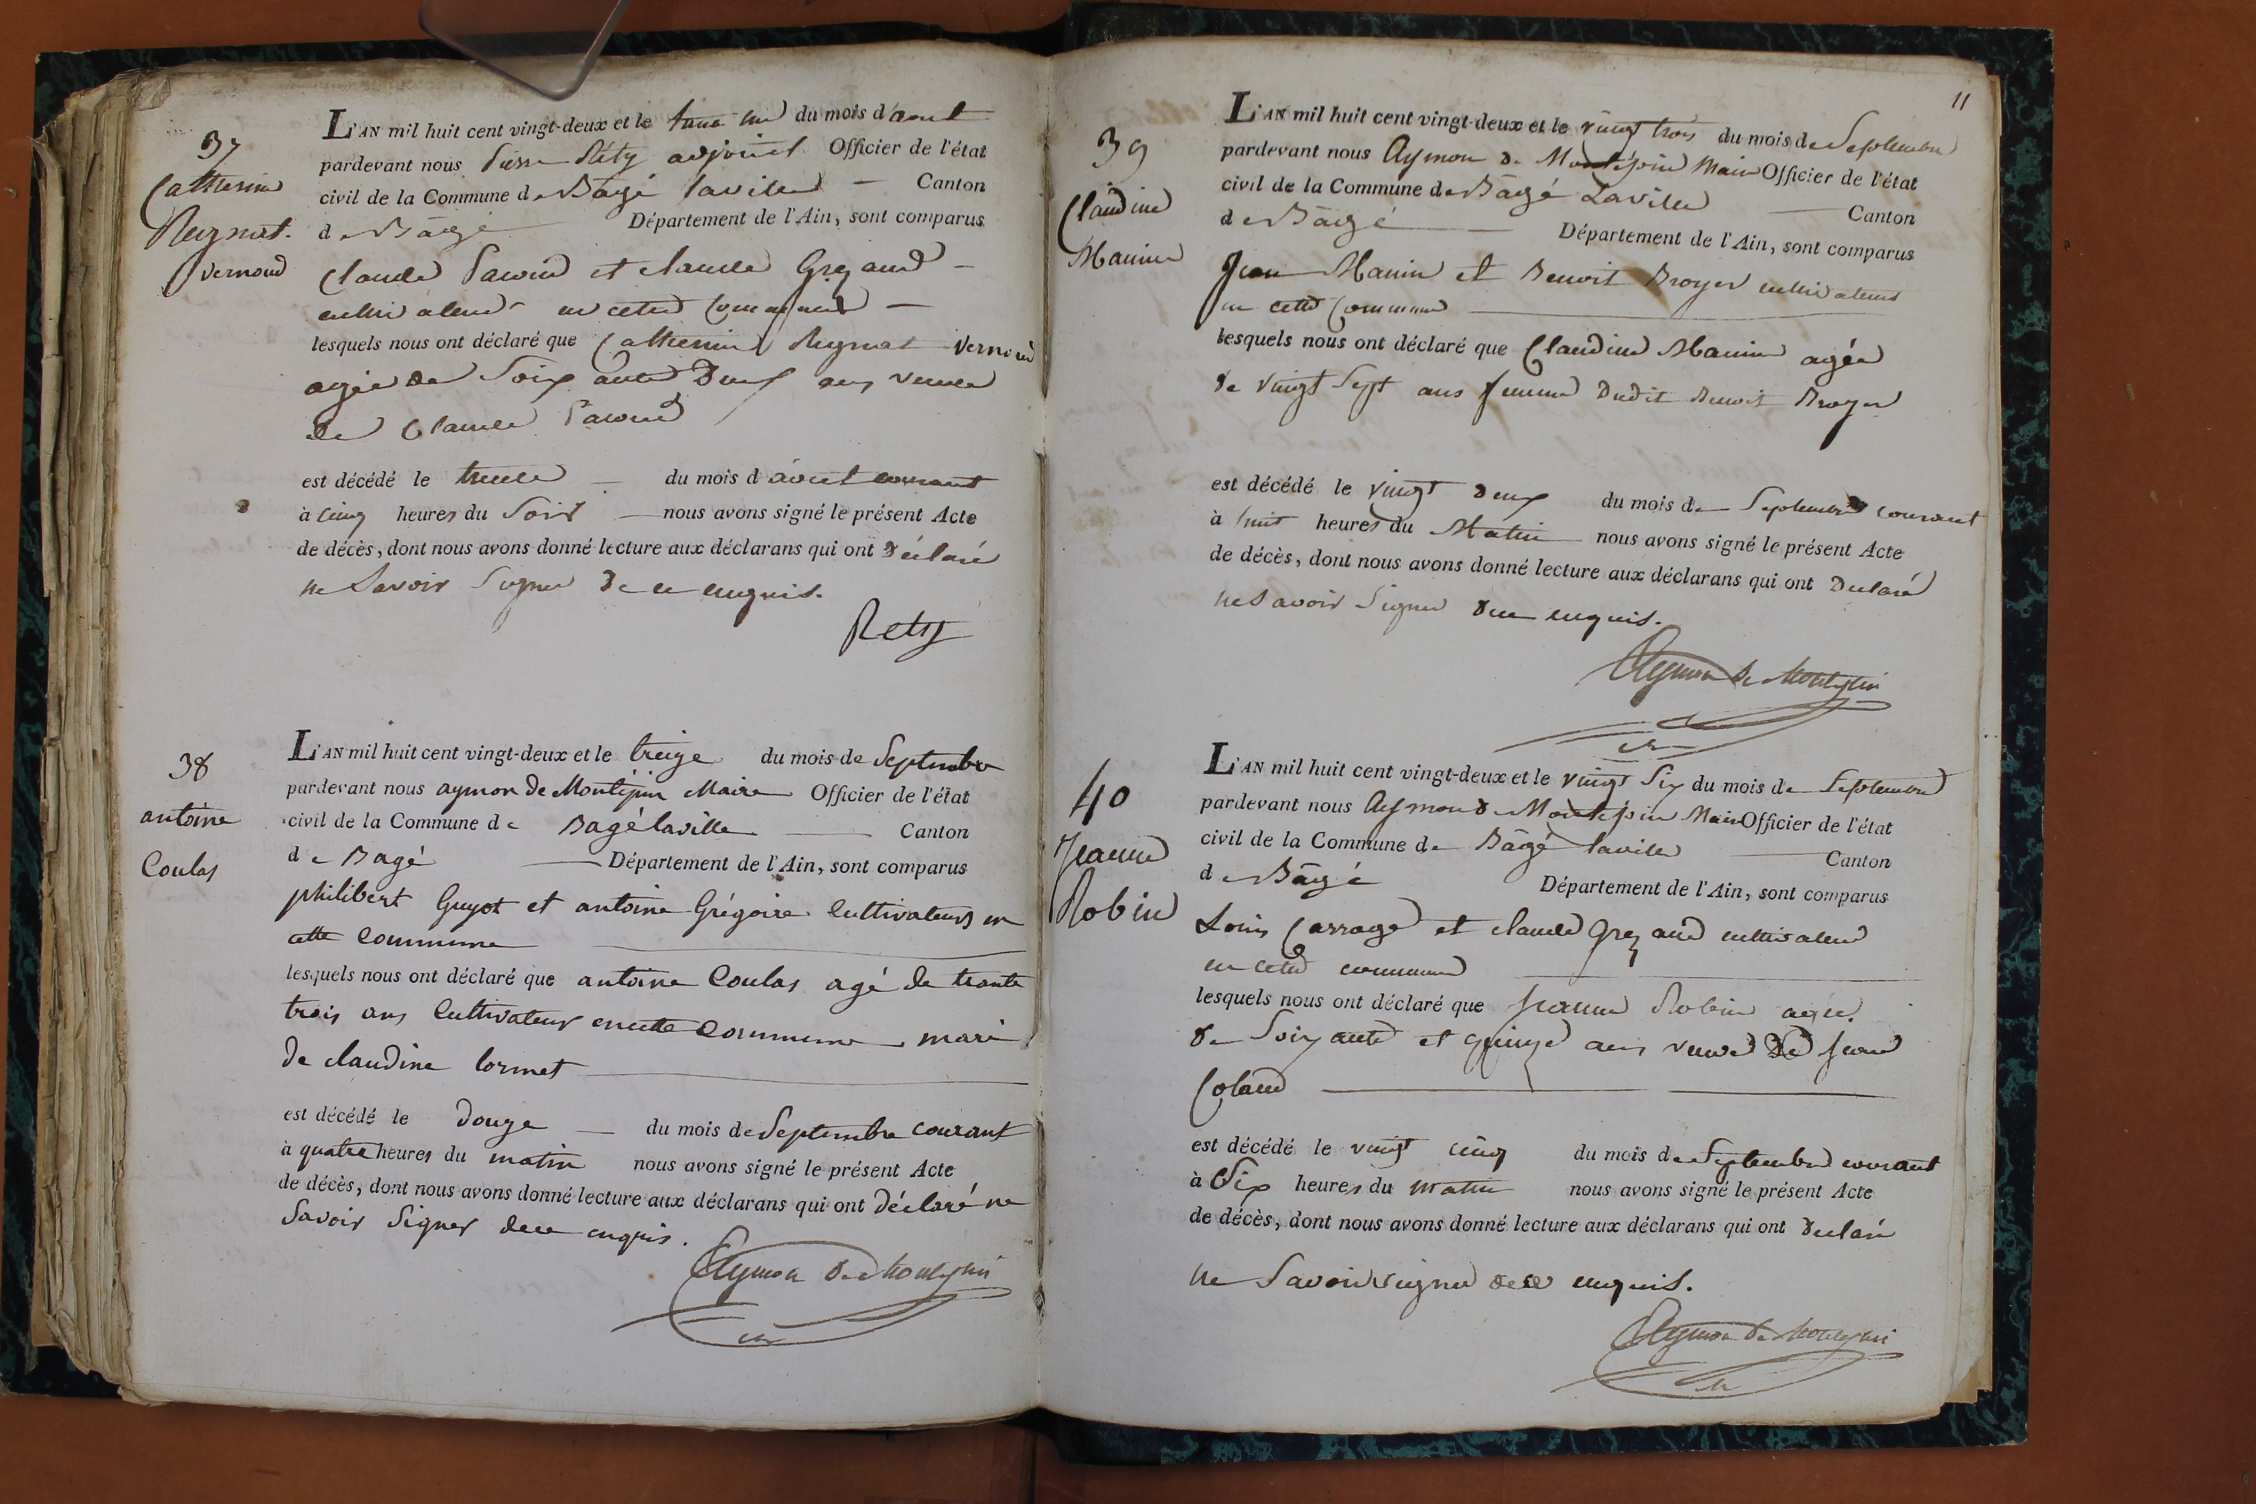 37
Catherine
Reynat
Vernoud
L'AN mil huit cent vingt-deux et le trente un du mois d'aout
pardevant nous Pierre Réty adjoint Officier de l'état
civil de la Commune de Bâgé laville — Canton
de Bâgé Département de l'Ain, sont comparus
Claude et claude Grezaud —
cultivateurs en cette Commune —
lesquels nous ont déclaré que Catherine Reynat Vernoud
agée de Soixante Deux ans veuve
de Claude
est décédé le trente — du mois d'aout courant
à cinq heures du Soir — nous avons signé le présent Acte
de décès, dont nous avons donné lecture aux déclarans qui ont Déclaré
ne Savoir Signer de ce enquis.
Rety
38
antoine
Coulas
L'AN mil huit cent vingt-deux et le treize du mois de Septembre
pardevant nous aymon de Montépin Maire Officier de l'état
civil de la Commune de Bagé laville — Canton
de Bagé — Département de l'Ain, sont comparus
philibert Guyot et antoine Grégoire Cultivateurs en
cette Commune
lesquels nous ont déclaré que antoine Coulas agé de trante
trois ans Cultivateur en cette Commune mari
de claudine lormet
est décédé le douze — du mois de Septembre courant
à quatre heures du matin nous avons signé le présent Acte
de décès, dont nous avons donné lecture aux déclarans qui ont déclaré ne
Savoir Signer de ce enquis.
Aymon de Montépin
11
39
Claudine
Manin
L'AN mil huit cent vingt-deux et le vingt trois du mois de Septembre
pardevant nous Aymon de Montépin Maire Officier de l'état
civil de la Commune de Bâgé Laville — Canton
de Bâgé — Département de l'Ain, sont comparus
Jean Manin et Benoit Broyer cultivateurs
en cette Commune
lesquels nous ont déclaré que Claudine Manin agée
de vingt Sept ans femme Dudit Benoit Broyer
est décédé le vingt deux du mois de Septembre courant
à huit heures du Matin nous avons signé le présent Acte
de décès, dont nous avons donné lecture aux déclarans qui ont Declaré
ne Savoir Signer de ce enquis.
Aymon de Montépin
40
Jeanne
Robin
L'AN mil huit cent vingt-deux et le vingt Six du mois de Septembre
pardevant nous Aymon de Montépin Maire Officier de l'état
civil de la Commune de Bâgé laville — Canton
de Bâgé Département de l'Ain, sont comparus
Louis Carrage et claude Grezaud cultivateurs
en cette commune
lesquels nous ont déclaré que Jeanne Robin agée
de Soixante et quinze ans veuve de Jean
Coland
est décédé le vingt cinq du mois de Septembre courant
à Six heures du matin nous avons signé le présent Acte
de décès, dont nous avons donné lecture aux déclarans qui ont Declaré
ne Savoir Signer de ce enquis.
Aymon de Montépin